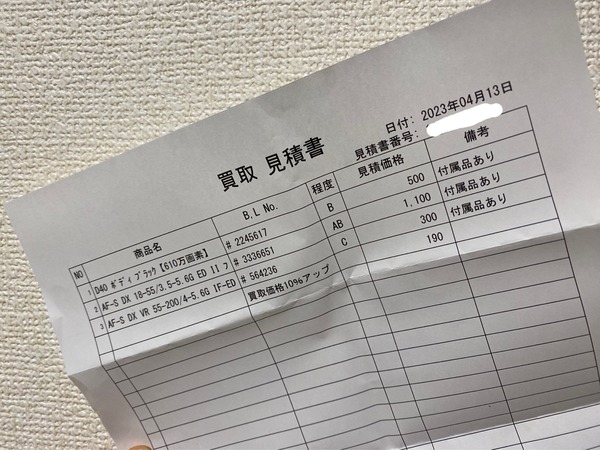 買取 見積書
日付: 2023年04月13日
見積書番号:
NO 商品名 B.L No. 程度 見積価格 備考
1 D40 ボディ ブラック【610万画素】 # 2245617 B 500 付属品あり
2 AF-S DX 18-55/3.5-5.6G ED II ブ # 3336651 AB 1,100 付属品あり
3 AF-S DX VR 55-200/4-5.6G IF-ED # 564236 C 300 付属品あり
買取価格10%アップ 190